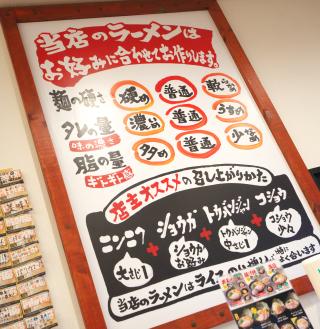 当店のラーメンは
お好みに合わせてお作りします。
麺の硬さ 硬め 普通 軟らかめ
タレの量 濃いめ 普通 うすめ
味の濃さ
脂の量 多め 普通 少なめ
ギトギト感
店主オススメの召し上がりかた
ニンニク + ショウガ + トウバンジャン + コショウ
大さじ1 ショウガお好み トウバンジャン中さじ1 コショウ少々
当店のラーメンは
よく合います